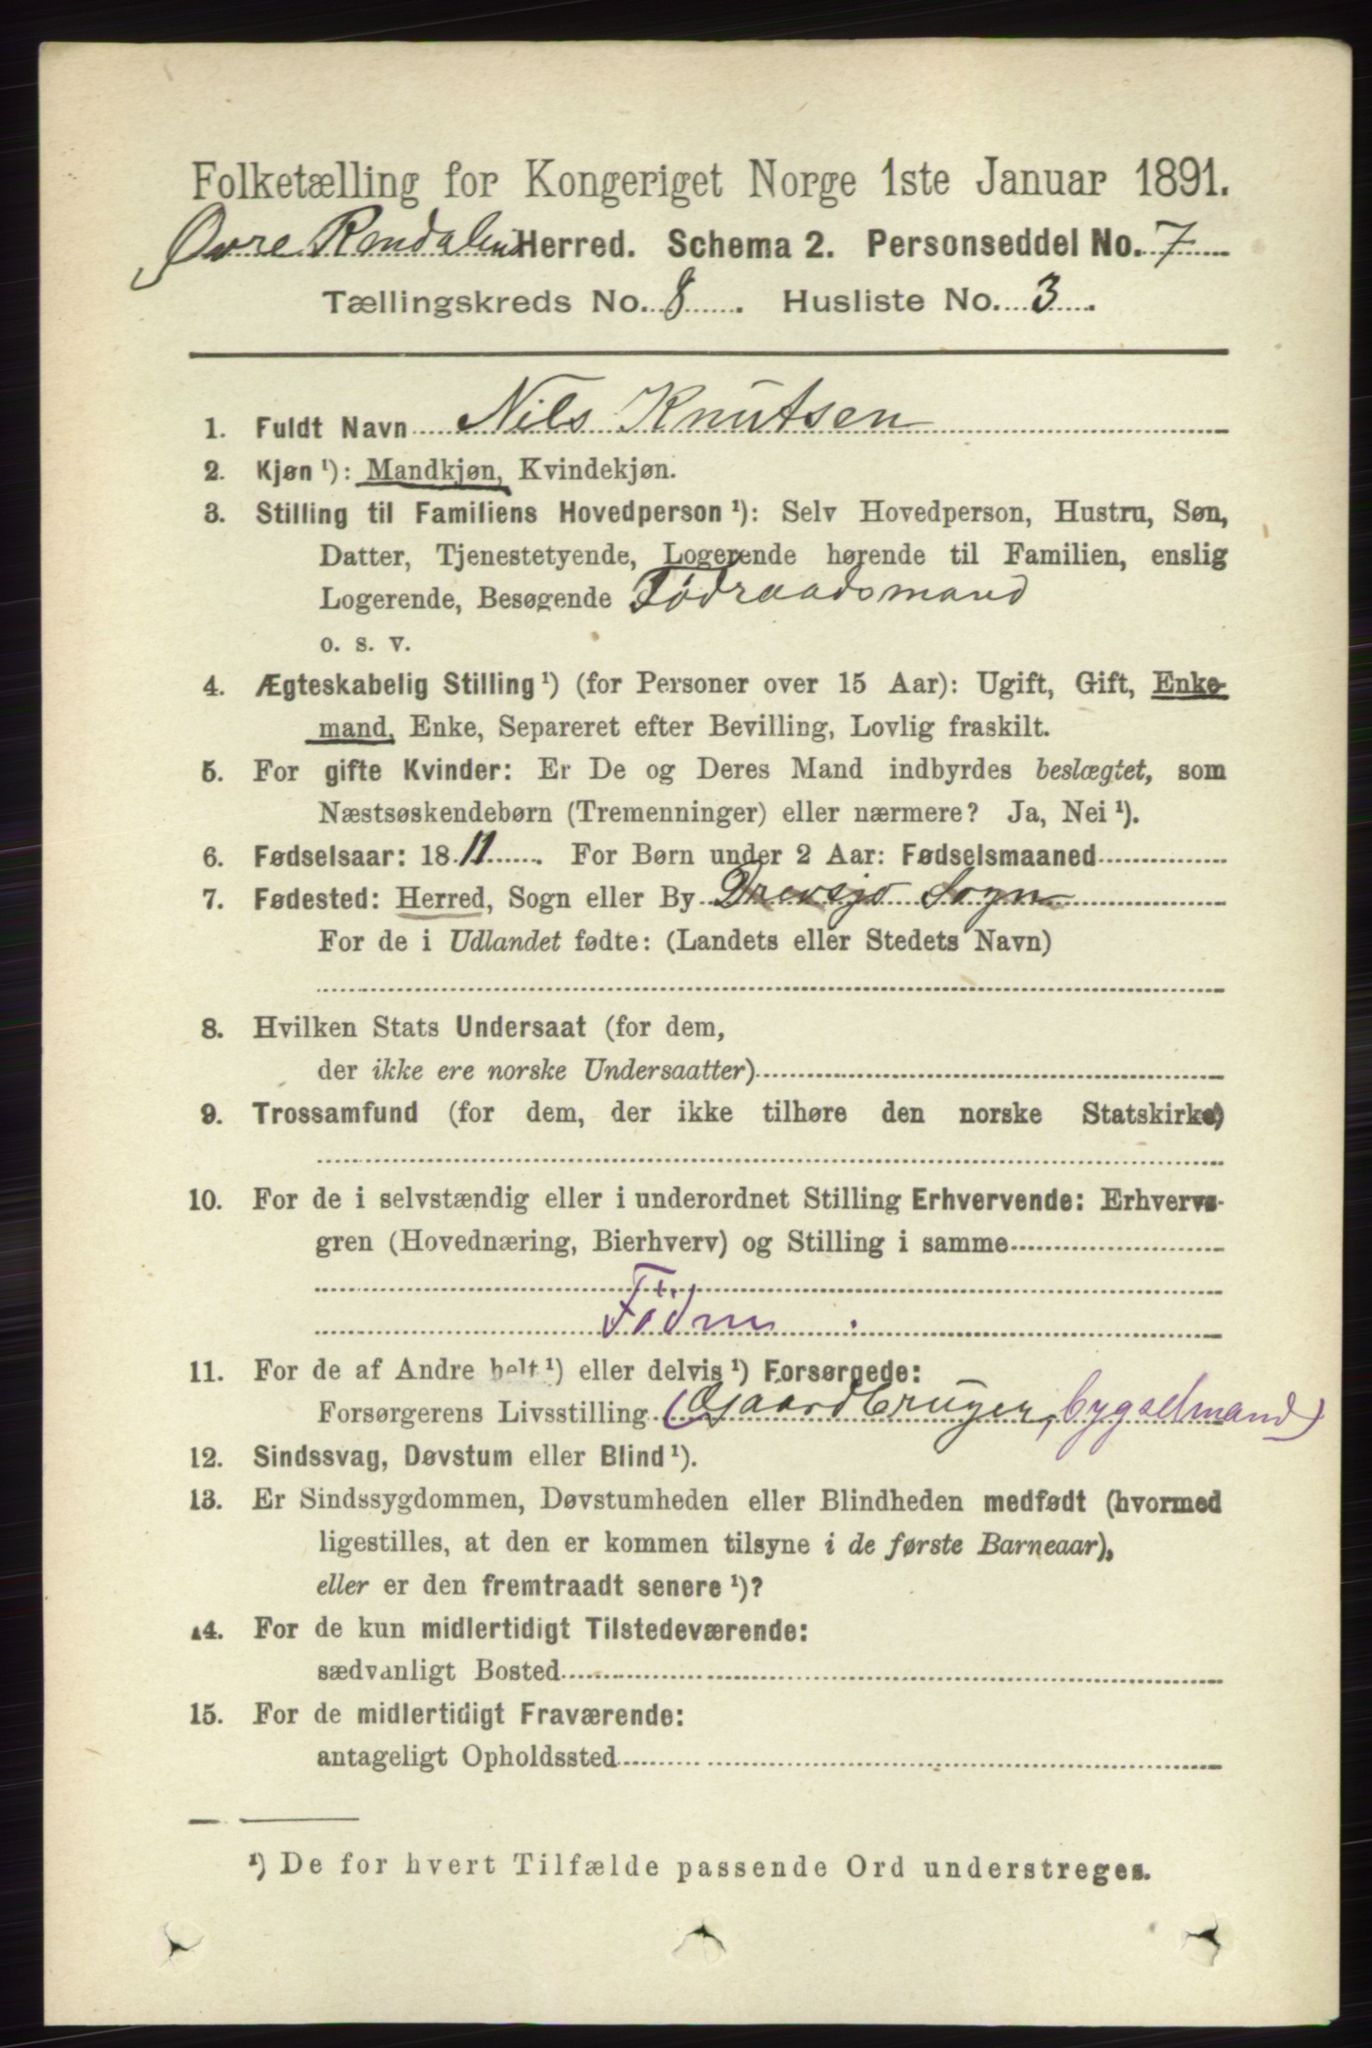 Folketælling for Kongeriget Norge 1ste Januar 1891.
Øvre Rendalens Herred. Schema 2. Personseddel No. 7
Tællingskreds No. 8. Husliste No. 3.
1. Fuldt Navn Nils Knutsen
2. Kjøn ¹): Mandkjøn, Kvindekjøn.
3. Stilling til Familiens Hovedperson ¹): Selv Hovedperson, Hustru, Søn,
Datter, Tjenestetyende, Logerende hørende til Familien, enslig
Logerende, Besøgende Födraadsmand
o. s. v.
4. Ægteskabelig Stilling ¹) (for Personer over 15 Aar): Ugift, Gift, Enke-
mand, Enke, Separeret efter Bevilling, Lovlig fraskilt.
5. For gifte Kvinder: Er De og Deres Mand indbyrdes beslægtet, som
Næstsøskendebørn (Tremenninger) eller nærmere? Ja, Nei ¹).
6. Fødselsaar: 1811. For Børn under 2 Aar: Fødselsmaaned
7. Fødested: Herred, Sogn eller By Drevsjø Sogn
For de i Udlandet fødte: (Landets eller Stedets Navn)
8. Hvilken Stats Undersaat (for dem,
der ikke ere norske Undersaatter)
9. Trossamfund (for dem, der ikke tilhøre den norske Statskirke)
10. For de i selvstændig eller i underordnet Stilling Erhvervende: Erhvervs-
gren (Hovednæring, Bierhverv) og Stilling i samme
11. For de af Andre helt ¹) eller delvis ¹) Forsørgede:
Forsørgerens Livsstilling (Gaardbruger, bygselmand)
12. Sindssvag, Døvstum eller Blind ¹).
13. Er Sindssygdommen, Døvstumheden eller Blindheden medfødt (hvormed
ligestilles, at den er kommen tilsyne i de første Barneaar),
eller er den fremtraadt senere ¹)?
14. For de kun midlertidigt Tilstedeværende:
sædvanligt Bosted
15. For de midlertidigt Fraværende:
antageligt Opholdssted
¹) De for hvert Tilfælde passende Ord understreges.